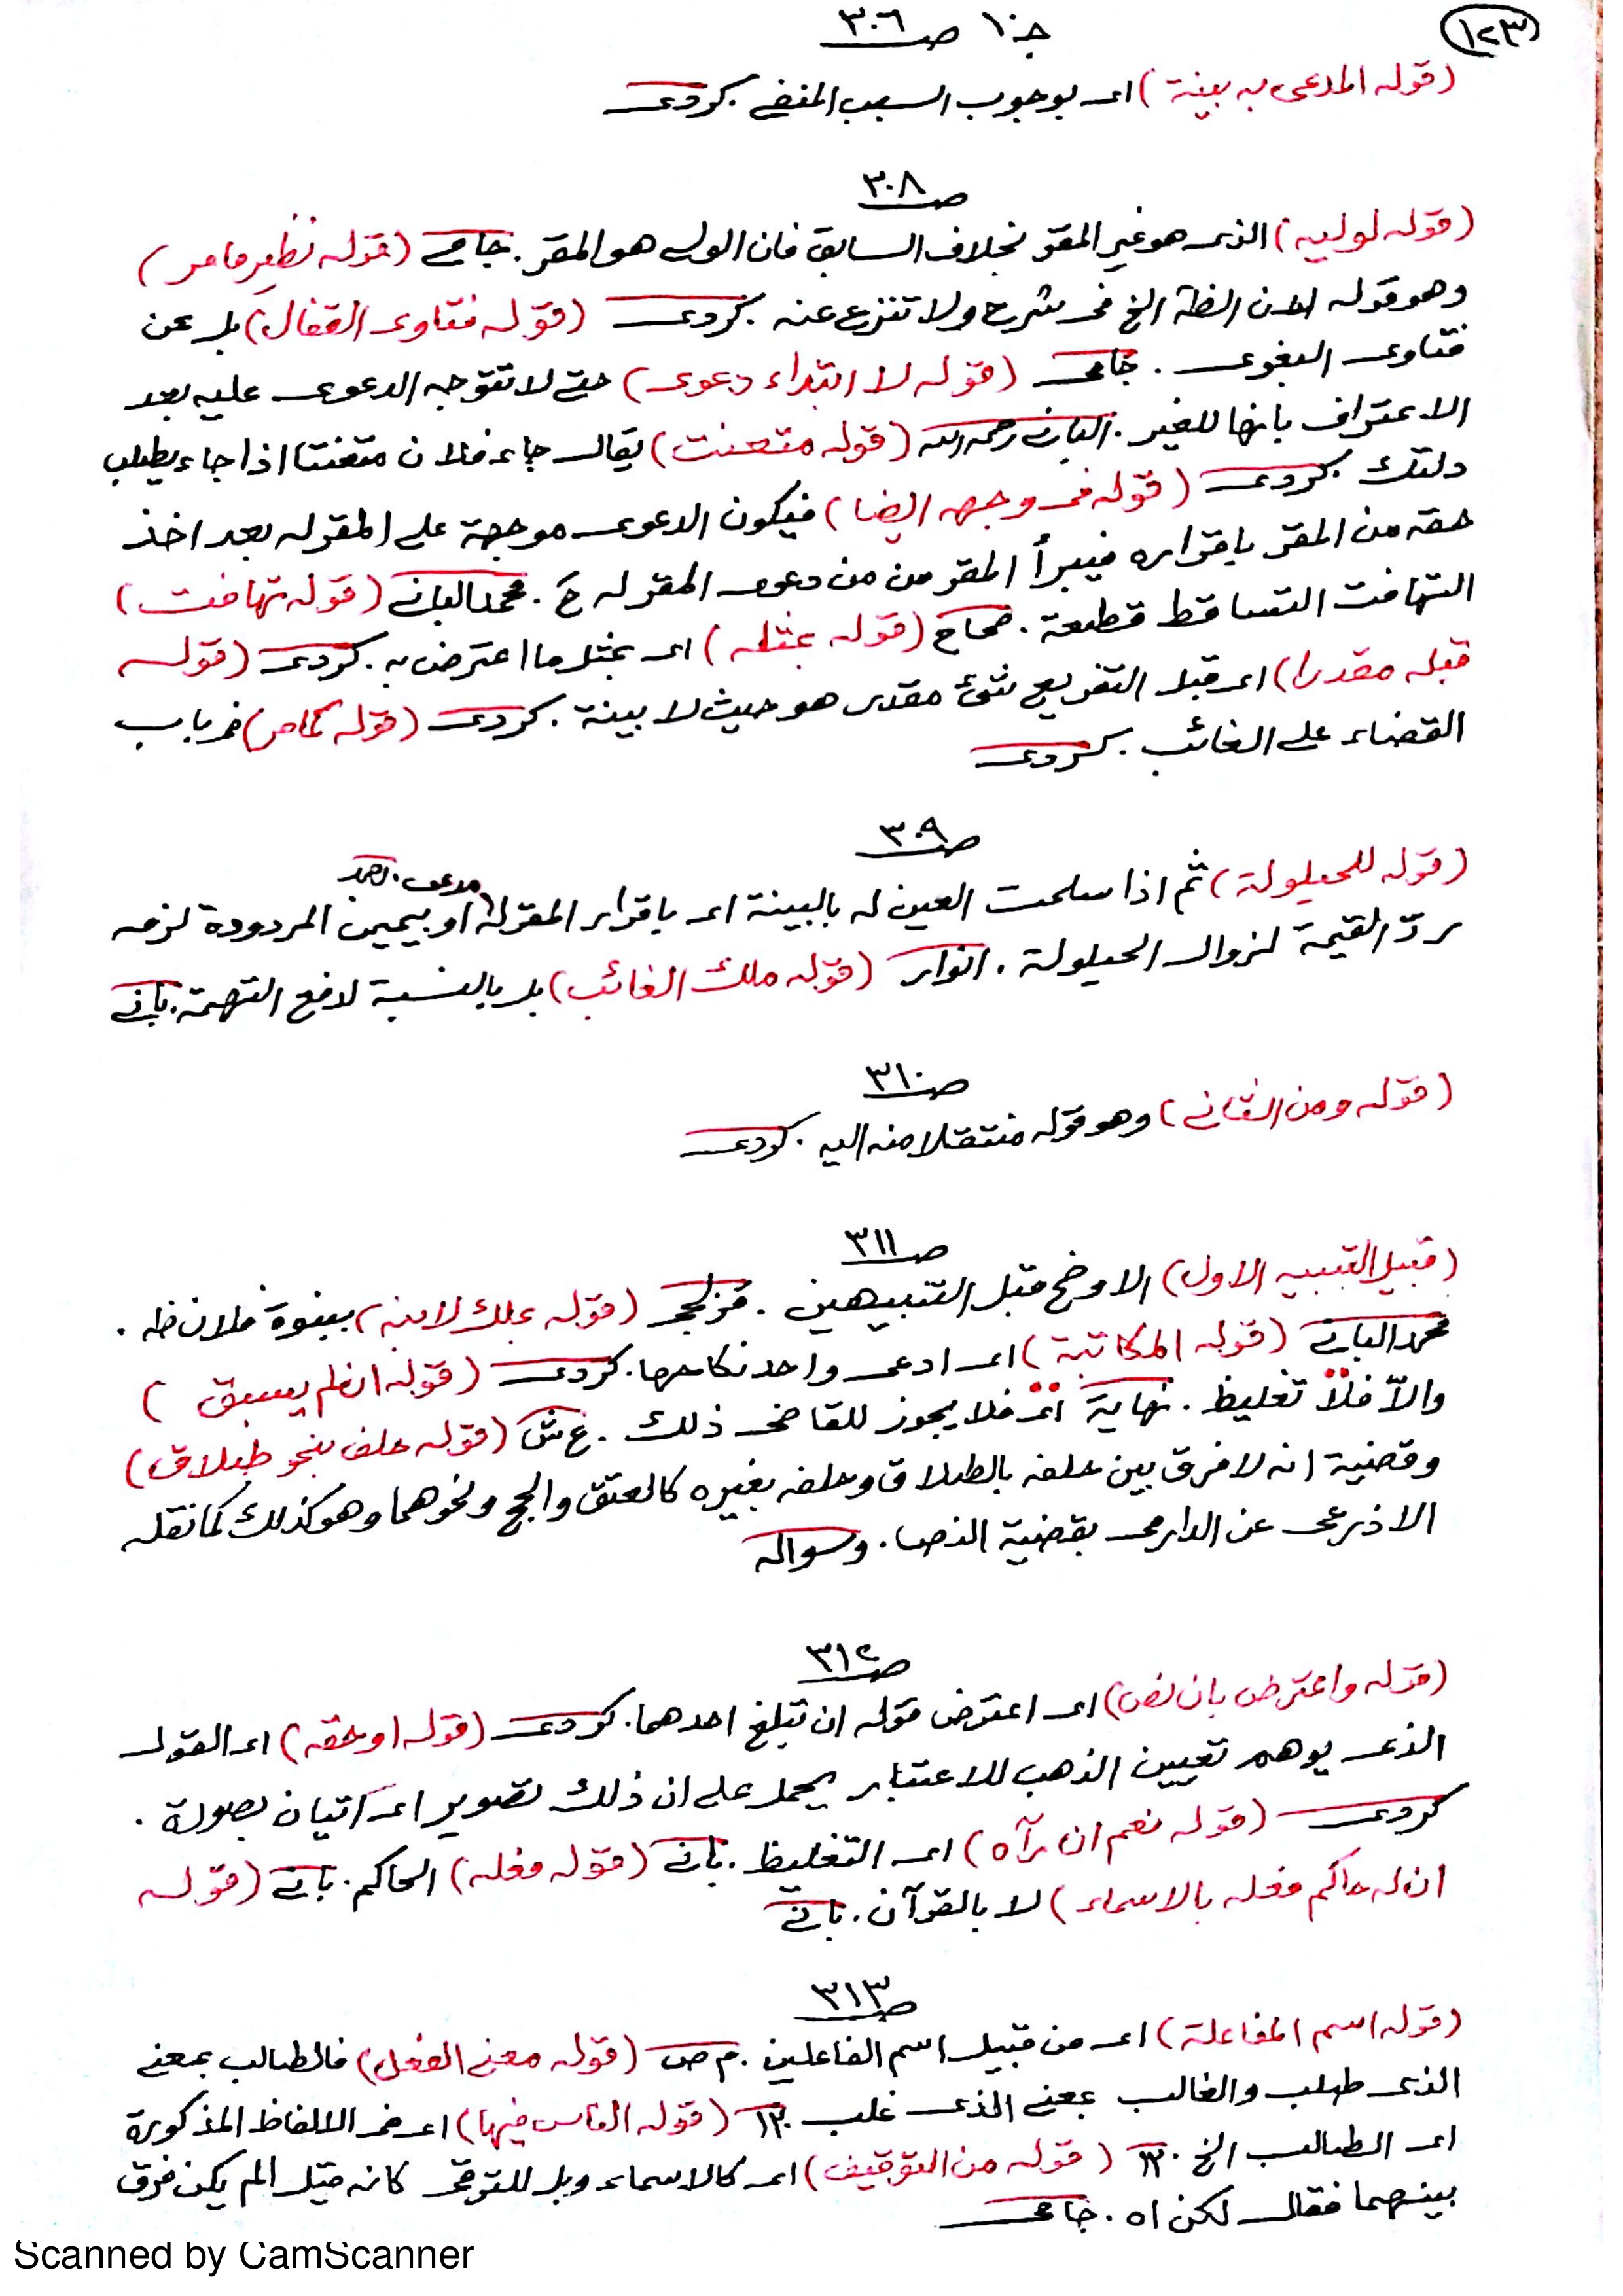 ١٢٣
جـ١٠ صـ٣٠٦
(قوله المدعى به بينة) اى بوجوب السبب المنفى. كردى
صـ٣٠٨
(قوله لوليه) الذى هو غير المقر بخلاف السابق فان الولى هو المقر. جامى (قوله نظير ما مر)
وهو قوله لان الظاهر الخ فى شرح ولا تنزع عنه. كردى (قوله فتاوى القفال) بل عن
فتاوى البغوى. جامى (قوله لا ابتداء دعوى) حتى لا تتوجه الدعوى عليه بعد
الاعتراف بانها للغير. البانى رحمه الله (قوله متعنت) يقال جاء فلان متعنتا اذا جاء يطلب
ذلتك. كردى (قوله فى وجهه ايضا) فيكون الدعوى موجهة على المقر له بعد اخذ
حقه من المقر باقراره فيبرأ المقر من دعوى المقر له ح. محمد البانى (قوله تهافت)
التهافت التساقط قطعة. صحاح (قوله بمثله) اى بمثل ما اعترض به. كردى (قوله
قبله مقدرا) اى قبل التفريع شئ مقدر هو حيث لا بينة. كردى (قوله كما مر) فى باب
القضاء على الغائب. كردى
صـ٣٠٩
(قوله للحيلولة) ثم اذا سلمت العين له بالبينة اى باقرار المقر له او بيمين المردودة لزمه
ردّ القيمة لزوال الحيلولة. انوار (قوله ملك الغائب) بل بالنسبة لدفع التهمة. بانى
صـ٣١٠
(قوله ومن الثانى) وهو قوله منتقلا منه اليه. كردى
صـ٣١١
(قبيل التنبيه الاول) الاوضح قبل التنبيهين. قزلجى (قوله بملك لابنه) ببنوة فلان ظ.
محمد البانى (قوله المكاتبة) اى ادعى واحد نكاحها. كردى (قوله ان لم يسبق)
والاّ فلا تغليظ. نهاية اى فلا يجوز للقاضى ذلك. ع ش (قوله حلف بنحو طلاق)
وقضية انه لا فرق بين حلفه بالطلاق وحلفه بغيره كالعتق والحج ونحوهما وهو كذلك كما نقله
الاذرعى عن الدارمى بقضية النص.
صـ٣١٢
(قوله واعترض بان نص) اى اعترض قوله ان تبلغ احدهما. كردى (قوله او حقه) اى القول
الذى يوهم تعيين الذهب للاعتبار يحمل على ان ذلك تصوير اى اتيان بصورة.
كردى (قوله نعم ان رآه) اى التغليظ. بانى (قوله فعله) الحاكم. بانى (قوله
ان له حاكم فعله بالاسماء) لا بالقرآن. بانى
صـ٣١٣
(قوله اسم المفاعلة) اى من قبيل اسم الفاعلين. م ص (قوله معنى الفعل) فالطالب بمعنى
الذى طلب والغالب بمعنى الذى غلب (قوله الناس فيها) اى فى الالفاظ المذكورة
اى الطالب الخ. (قوله من التوقيف) اى كالاسماء وبل للترقى كانه قيل الم يكن فرق
بينهما فقال لكن اه. جامى
Scanned by CamScanner